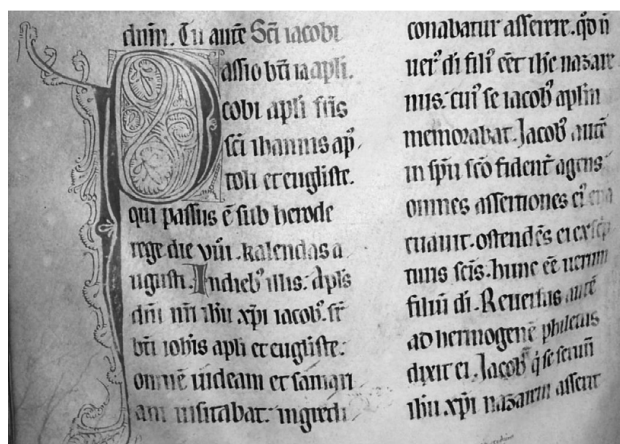 dum. Tu autē Sc̄i iacobi
Passio bt̄i ia apl̄i.
cobi apl̄i fr̄is
sc̄i iohannis ap̄
toli et euḡliste.
qui passus ē sub herode
rege die viii. kalendas a
ugusti. In dieb illis. Apl̄s
dn̄i nr̄i ih̄u xp̄i iacob. fr̄
bt̄i ioh̄is apl̄i et euḡliste.
omnē iudeam et samari
am uisitabat. ingredi
conabatur asserere. qd n̄
uer di fili eēt ih̄c nazare
nus. cui se iacob apl̄m
memorabat. Jacob autē
in sp̄u sc̄o fident agens
omnes assertiones ei eua
cuauit. ostendēs ei ex sc̄p
turis sc̄is. hunc ēē uerum
filiū di. Reuersus autē
ad hermogenē philetus
dixit ei. Jacob q̄ se seruū
ih̄u xp̄i nazareni asserit